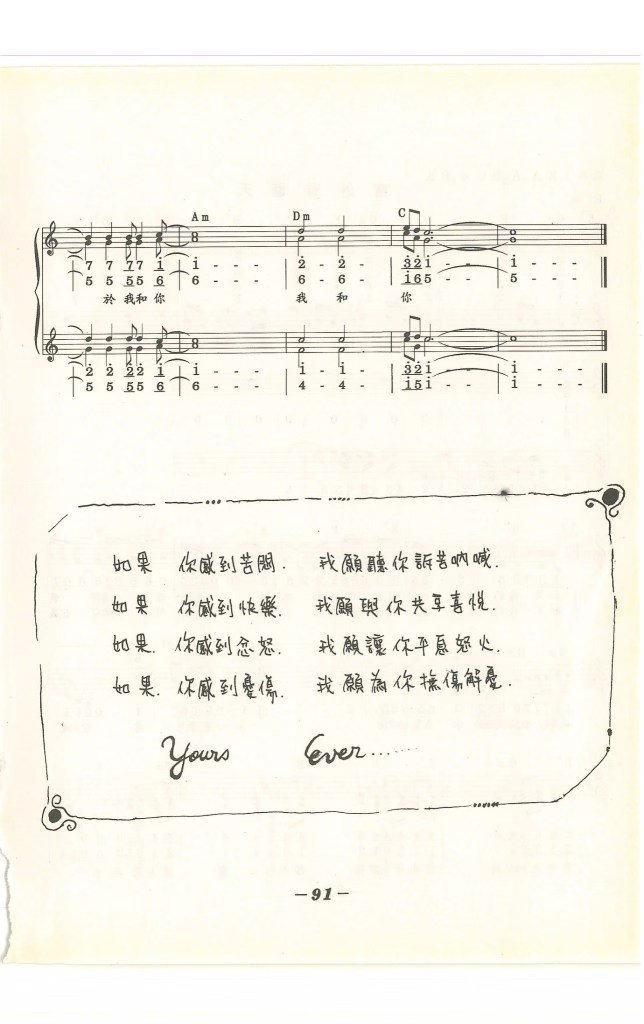 Am Dm C
7 7 7 7 i | i - - - | 2 - 2 - | 3 2 i - - | i - - -
5 5 5 5 6 | 6 - - - | 6 - 6 - | i 6 5 - - | 5 - - -
於 我和 你 我 和 你
2 2 2 2 i | i - - - | i - i - | 3 2 i - - | i - - -
5 5 5 5 6 | 6 - - - | 4 - 4 - | i 5 i - - | i - - -
如果 你感到苦悶. 我願聽你訴苦吶喊.
如果 你感到快樂. 我願與你共享喜悅.
如果. 你感到忿怒. 我願讓你平息怒火.
如果. 你感到憂傷. 我願為你撫傷解憂.
Yours Ever......
-91-